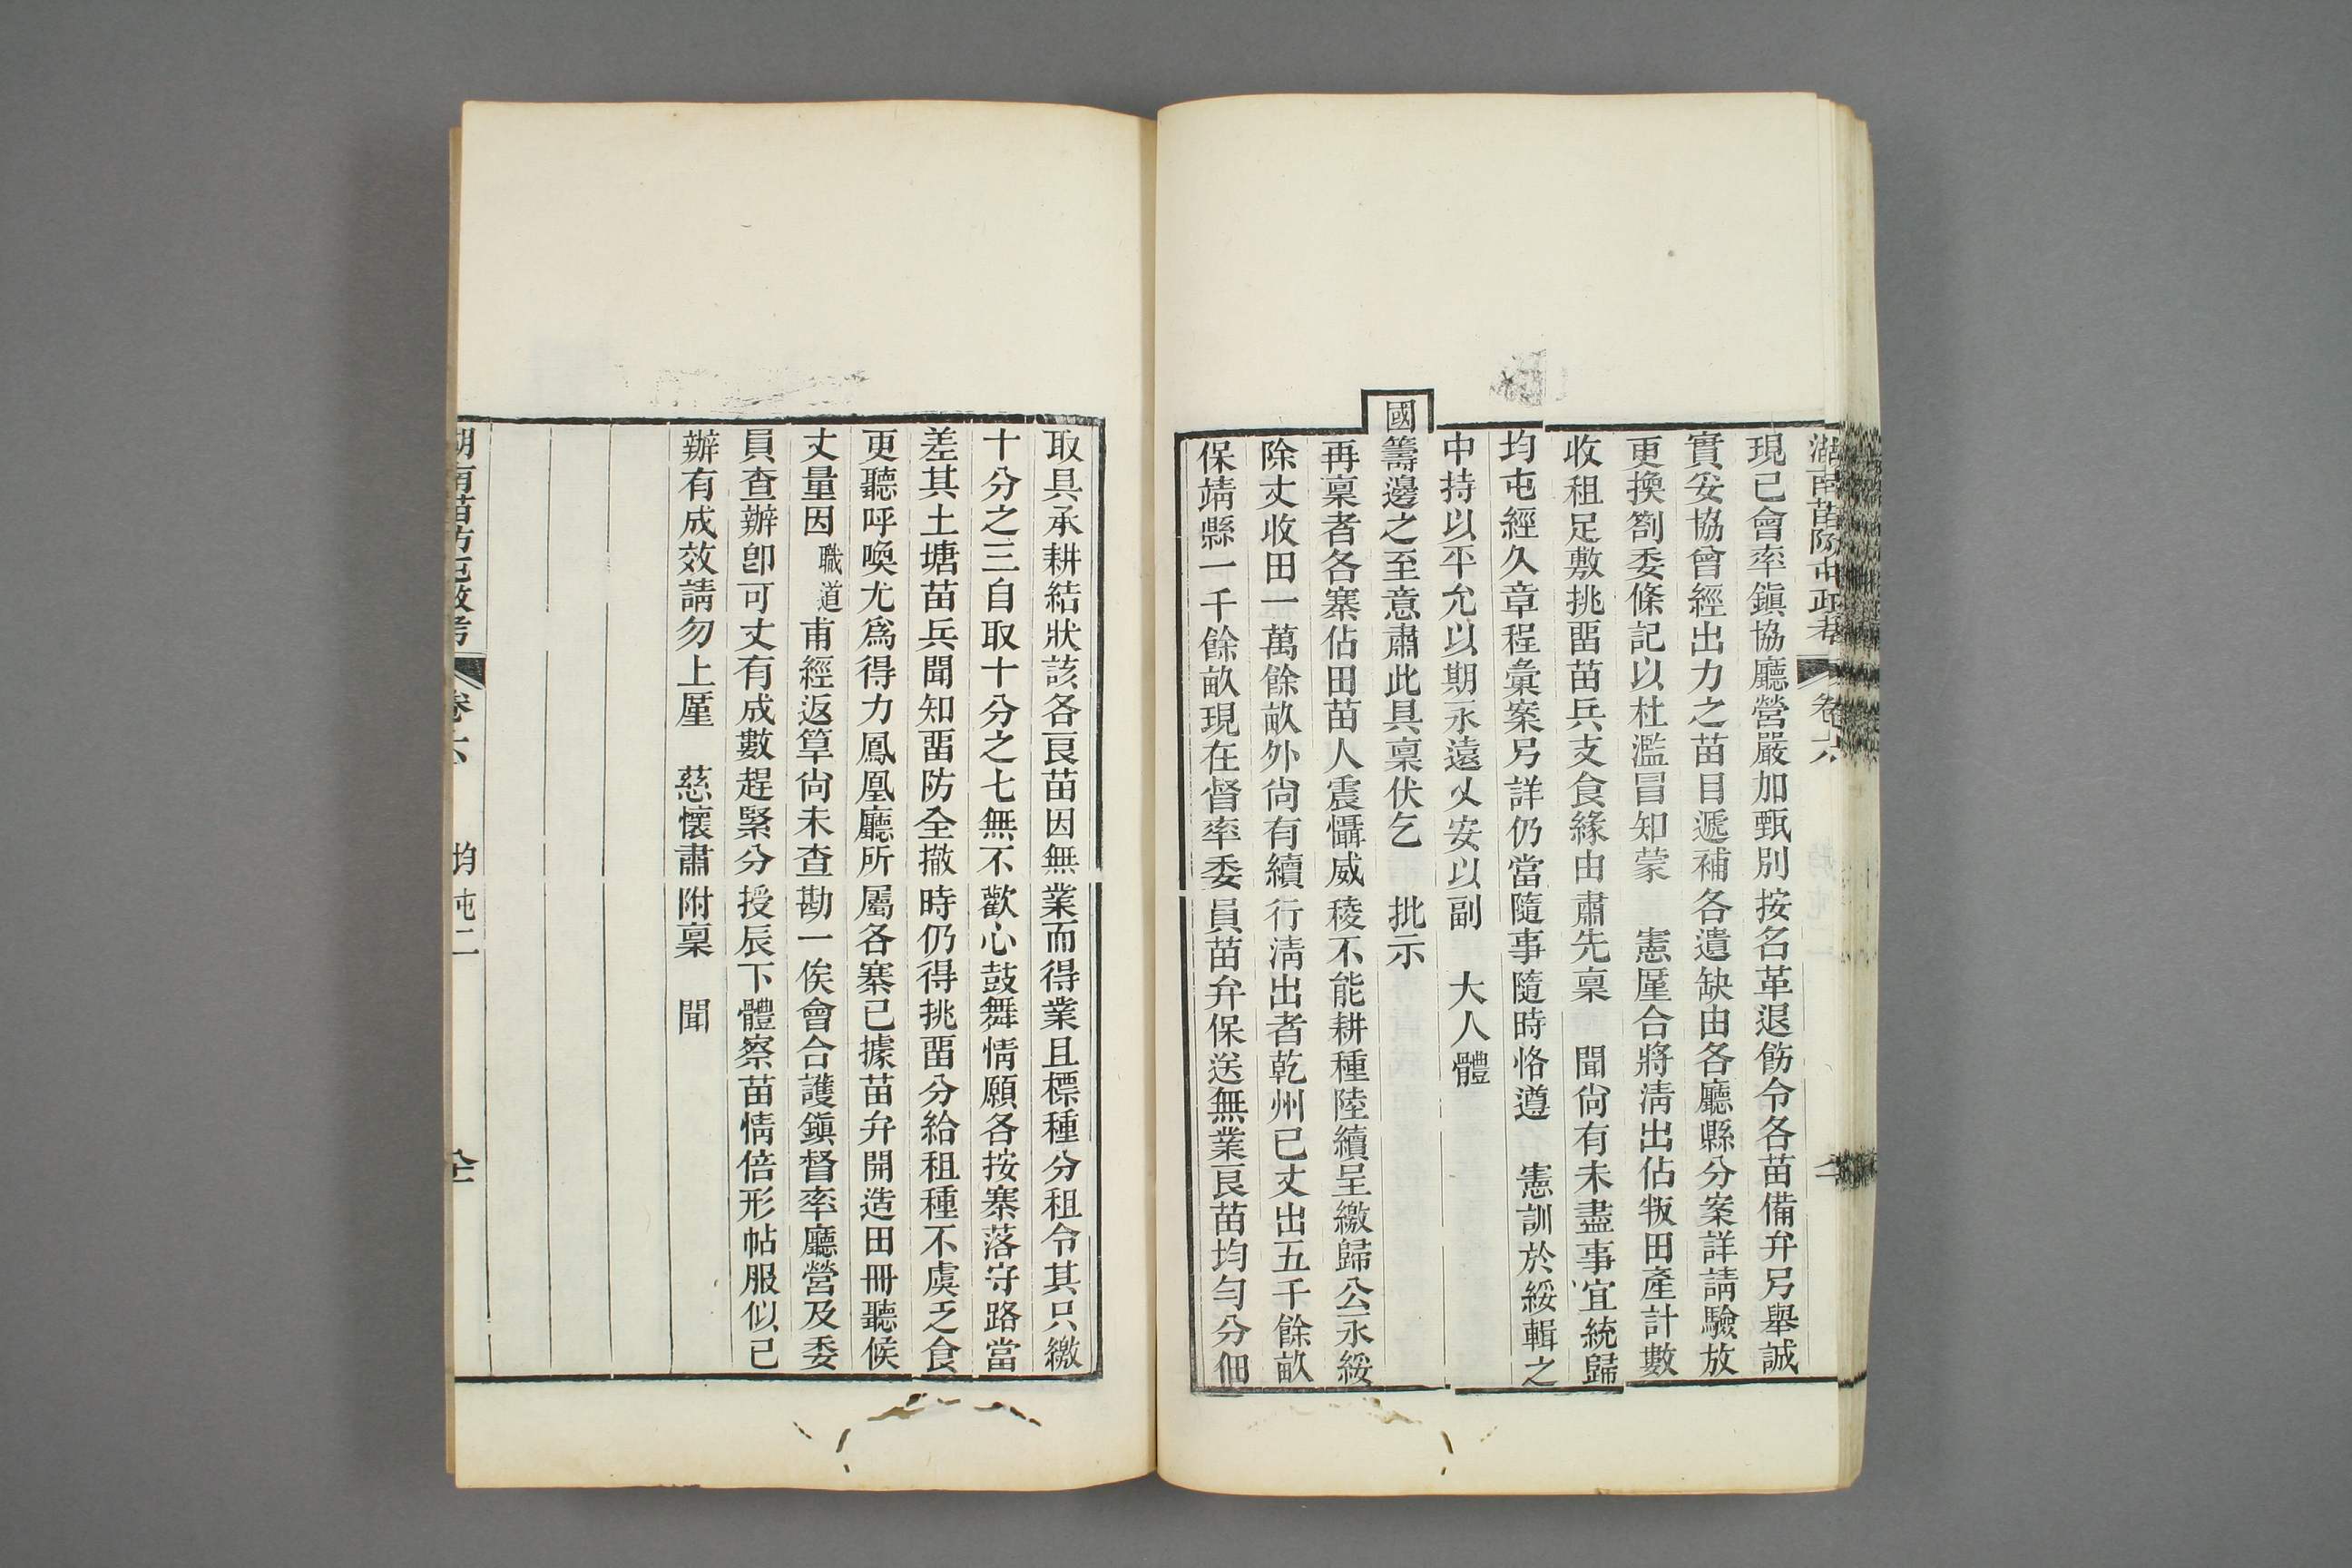 湖南苗防屯政考 卷六
現已會率鎭協廳營嚴加甄別按名革退飭令各苗備弁另舉誠
實妥協曾經出力之苗目遞補各遺缺由各廳縣分案詳請驗放
更換劄委條記以杜濫冒知蒙 憲厪合將淸出佔叛田產計數
收租足敷挑畱苗兵支食緣由肅先稟 聞尙有未盡事宜統歸
均屯經久章程彙案另詳仍當隨事隨時恪遵 憲訓於綏輯之
中持以平允以期永遠乂安以副 大人體
國籌邊之至意肅此具稟伏乞 批示
再稟者各寨佔田苗人震懾威稜不能耕種陸續呈繳歸公永綏
除丈收田一萬餘畝外尙有續行淸出者乾州已丈出五千餘畝
保靖縣一千餘畝現在督率委員苗弁保送無業良苗均勻分佃
取具承耕結狀該各良苗因無業而得業且標種分租令其只繳
十分之三自取十分之七無不歡心鼓舞情願各按寨落守路當
差其土塘苗兵聞知畱防全撤時仍得挑畱分給租種不虞乏食
更聽呼喚尤爲得力鳳凰廳所屬各寨已據苗弁開造田冊聽候
丈量因職道甫經返筸尙未查勘一俟會合護鎭督率廳營及委
員查辦卽可丈有成數趕緊分授辰下體察苗情倍形帖服似已
辦有成效請勿上厪 慈懷肅附稟 聞
湖南苗防屯政考 卷六 均屯二